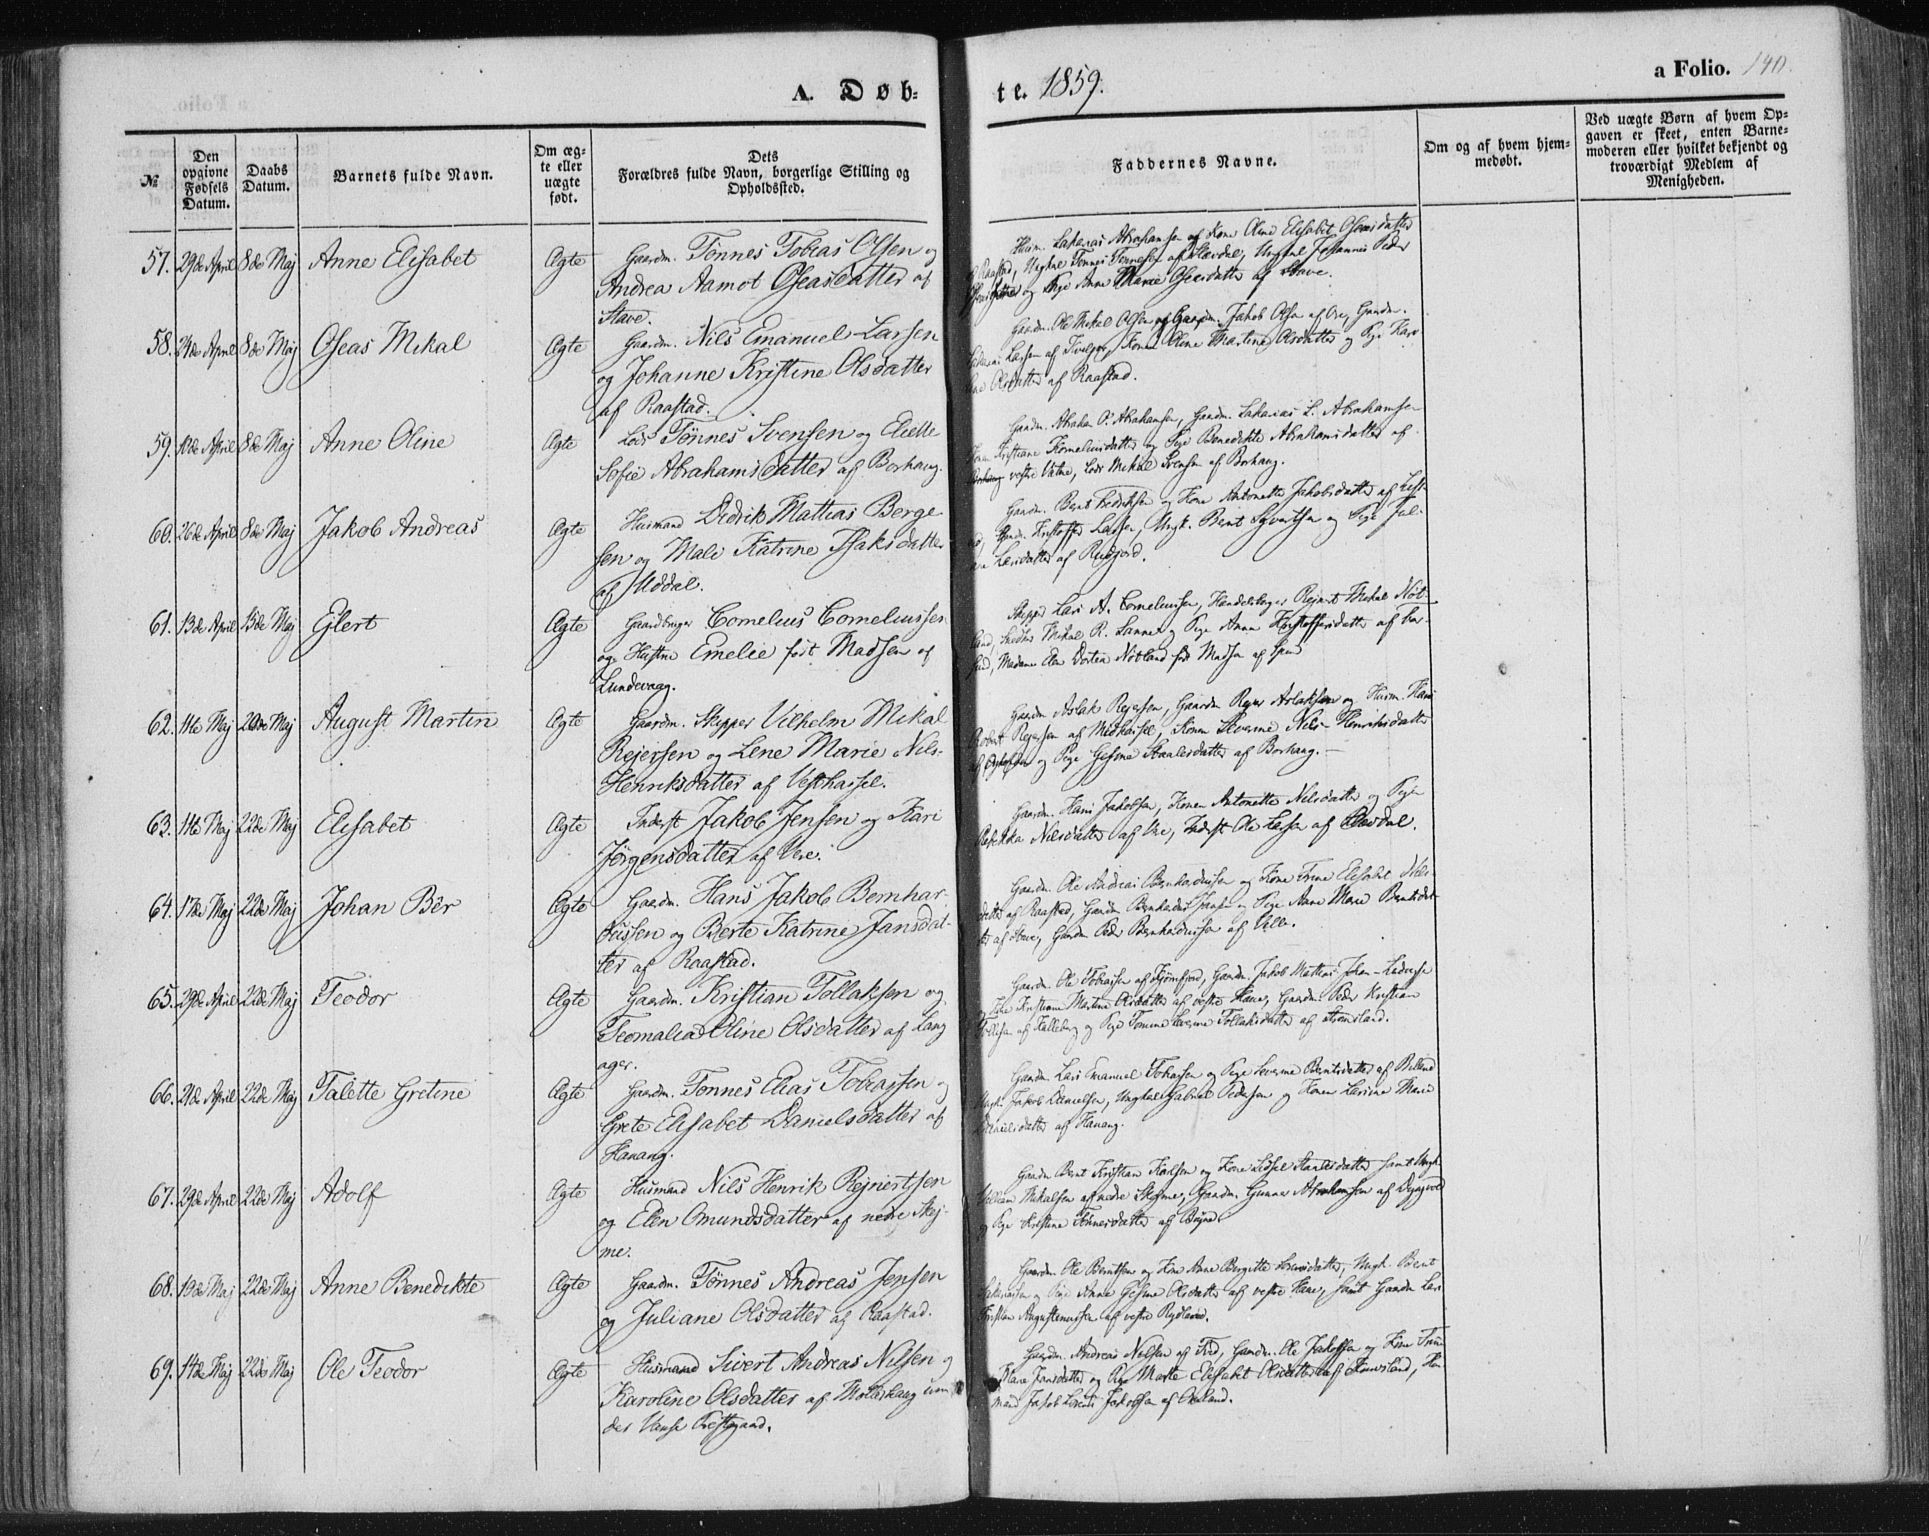 A. Døb-
te. 1859.
a Folio. 140.
№
Den opgivne Fødsels Datum.
Daabs Datum.
Barnets fulde Navn.
Om ægte eller uægte født.
Dets Forældres fulde Navn, borgerlige Stilling og Opholdssted.
Faddernes Navne.
Om og af hvem hjemmedøbt.
Ved uægte Børn af hvem Opgaven er skeet, enten Barnemoderen eller hvilket bekjendt og troværdigt Medlem af Menigheden.
57. 29de April 8de Maj Anne Elisabet Ægte Gaardm. Tønnes Tobias Olsen og
Andrea Aamot Oseasdatter af
Stave.
Husm. Sakarias Abrahamsen og Kone Oline Elisabet Oseasdatter
Raastad, Ungkal Tønnes Tønnesen af Slevdal, Ungkal Johannes Peder
og Pige Anne Marie Oseasdatter af Stave.
58. 24de April 8de Maj Oseas Mikal Ægte Gaardm. Nils Emanuel Larsen
og Johanne Kristine Olsdatter
af Raastad.
Gaardm. Ole Mikal Olsen og Gaardm. Jakob Olsen af Ore, Gaardm.
Larsen af Tveljor, Kone Oline Martine Olsdatter og Pige Karo
line Olsdatter af Raastad.
59. 10de April 8de Maj Anne Oline Ægte Lods Tønnes Svensen og Elelle
Sofie Abrahamsdatter af Borhaug.
Gaardm. Abraham O. Abrahamsen, Gaardm. Sakarias L. Abrahamsen
Konen Kristiane Korneliusdatter og Pige Benedikte Abrahamsdatter af
vestre Vatne, Lods Mikal Svensen af Borhaug.
60. 26de April 8de Maj Jakob Andreas Ægte Husmand Didrik Mattias Berge
sen og Male Katrine Isaksdatter
af Uddal.
Gaardm. Bent Fredriksen og Kone Antonette Jakobsdatter af List
Gaardm. Kristoffer Larsen, Ungk. Bent Syvertsen og Pige Jul
Larsdatter af Rudjord.
61. 13de April 15de Maj Eilert Ægte Gaardbruger Cornelius Corneliussen
og Hustru Emelie født Madsen af
Lundevaag.
Skipper Lars A. Corneliussen, Handelsborger Rejnert Mikal Nøt-
land, Snedker Mikal R. Sannes og Pige Anna Kristoffersdatter af Far-
sund, Madame Elen Dortea Nøtland født Madsen af Spind
62. 1ste Maj 20de Maj August Martin Ægte Gaardm. Skipper Vilhelm Mikal
Reiersen og Lene Marie Nils-
Henriksdatter af Vesthassel.
Gaardm Aslak Reiersen, Gaardm Reier Aslaksen og Husm. Hans
Robert Reiersen af Midthassel, Konen Severine Nils-Henriksdatter
og Pige Gesine Staalesdatter af Borhaug.
63. 1ste Maj 22de Maj Elisabet Ægte Inderst Jakob Jensen og Kari
Jørgensdatter af Vere.
Gaardm. Hans Jakobsen, Konen Antonette Nilsdatter og Pige
Rebekka Nilsdatter af Vre, Inderst Ole Larsen af Slevdal.
64. 17de Maj 22de Maj Johan Bêr Ægte Gaardm. Hans Jakob Bernhar-
dussen og Berte Katrine Jansdat-
ter af Raastad.
Gaardm. Ole Andreas Bernhardussen og Kone Trine Elisabet Nils-
datter af Raastad, Gaardm Bernhardus Jansen og Pige Anne Marie Berntsdat-
ter af Stave, Gaardm Peder Bernhardussen af Velle.
65. 29de April 22de Maj Teodor Ægte Gaardm. Kristian Tollaksen og
Teomalia Oline Olsdatter af Lang
ager.
Gaardm. Ole Tobiassen af Stjørnfjord, Gaardm. Jakob Mattias Johan-Ludvigse
Kristiane Martine Olsdatter af vestre Hauge, Gaardm. Peder Kristian
af Kalleberg og Pige Tomine Severine Tollaksdatter af
66. 21de April 22de Maj Talette Gretine Ægte Gaardm. Tønnes Elias Tobiassen og
Grete Elisabet Danielsdatter af
Hanang.
Gaardm Lars Emanuel Tobiassen og Pige Severine Berntsdatter af Birkeland
Ungk. Jakob Danielsen, Ungkal Gabriel Pedersen og Konen Larsine Marie
Danielsdatter af Hanang.
67. 29de April 22de Maj Adolf Ægte Husmand Nils Henrik Rejnertsen
og Elen Omundsdatter af nedre Skej-
me.
Gaardm Bernt Kristian Karlsen og Kone Sidsel Staalesdatter samt Ungk.
Mikalsen af nedre Skejme, Gaardm. Gunner Abrahamsen af Dyngvold
og Pige Kristine Tønnesdatter af Bryne.
68. 13de Maj 22de Maj Anne Benedikte Ægte Gaardm. Tønnes Andreas Jensen
og Juliane Olsdatter af Raastad.
Gaardm. Ole Berntsen og Kone Anne Bergitte Larsdatter, Ungk. Bent
Sakariassen og Pige Anne Gesine Olsdatter af vestre Hauge, samt Gaardm Lars
Kristian Augustinussen af vestre Rydland.
69. 14de Maj 22de Maj Ole Teodor Ægte Husmand Sivert Andreas Nilsen og
Karoline Olsdatter af Møllerhaug un-
der Vanse Præstegaard.
Gaardm. Andreas Nilsen af Tved, Gaardm. Ole Jakobsen og Kone Trine
Marie Jansdatter og Pige Marte Elisabet Olsdatter af Knivsland, Hus-
mand Jakob Lorents Jakobsen af Onsland.